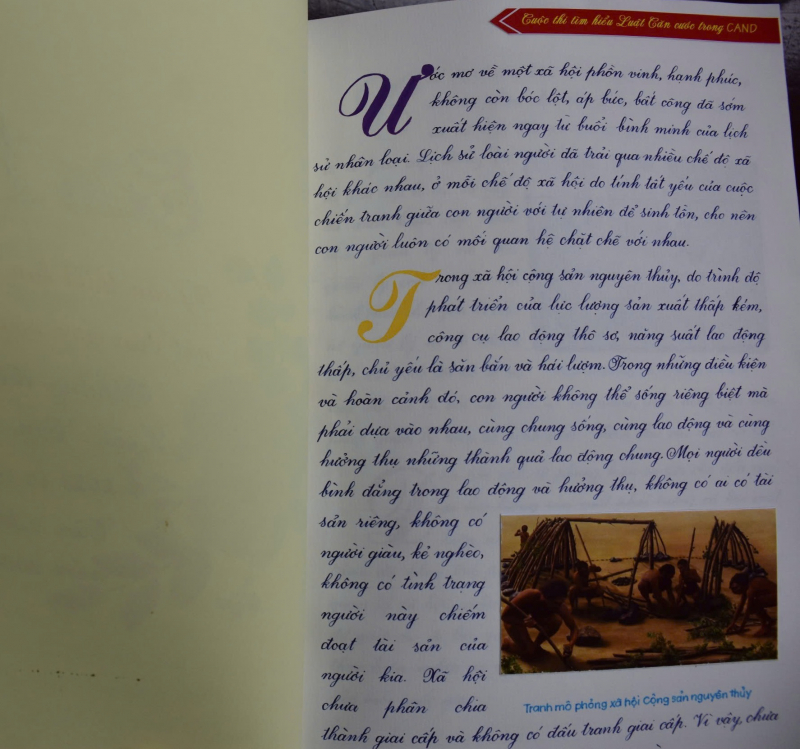 Cuộc thi tìm hiểu Luật Căn cước trong CAND
Ước mơ về một xã hội phồn vinh, hạnh phúc,
không còn bóc lột, áp bức, bất công đã sớm
xuất hiện ngay từ buổi bình minh của lịch
sử nhân loại. Lịch sử loài người đã trải qua nhiều chế độ xã
hội khác nhau, ở mỗi chế độ xã hội do tính tất yếu của cuộc
chiến tranh giữa con người với tự nhiên để sinh tồn, cho nên
con người luôn có mối quan hệ chặt chẽ với nhau.
Trong xã hội cộng sản nguyên thủy, do trình độ
phát triển của lực lượng sản xuất thấp kém,
công cụ lao động thô sơ, năng suất lao động
thấp, chủ yếu là săn bắn và hái lượm. Trong những điều kiện
và hoàn cảnh đó, con người không thể sống riêng biệt mà
phải dựa vào nhau, cùng chung sống, cùng lao động và cùng
hưởng thụ những thành quả lao động chung. Mọi người đều
bình đẳng trong lao động và hưởng thụ, không có ai có tài
sản riêng, không có
người giàu, kẻ nghèo,
không có tình trạng
người này chiếm
đoạt tài sản của
người kia. Xã hội
chưa phân chia
Tranh mô phỏng xã hội Cộng sản nguyên thủy
thành giai cấp và không có đấu tranh giai cấp. Vì vậy, chưa